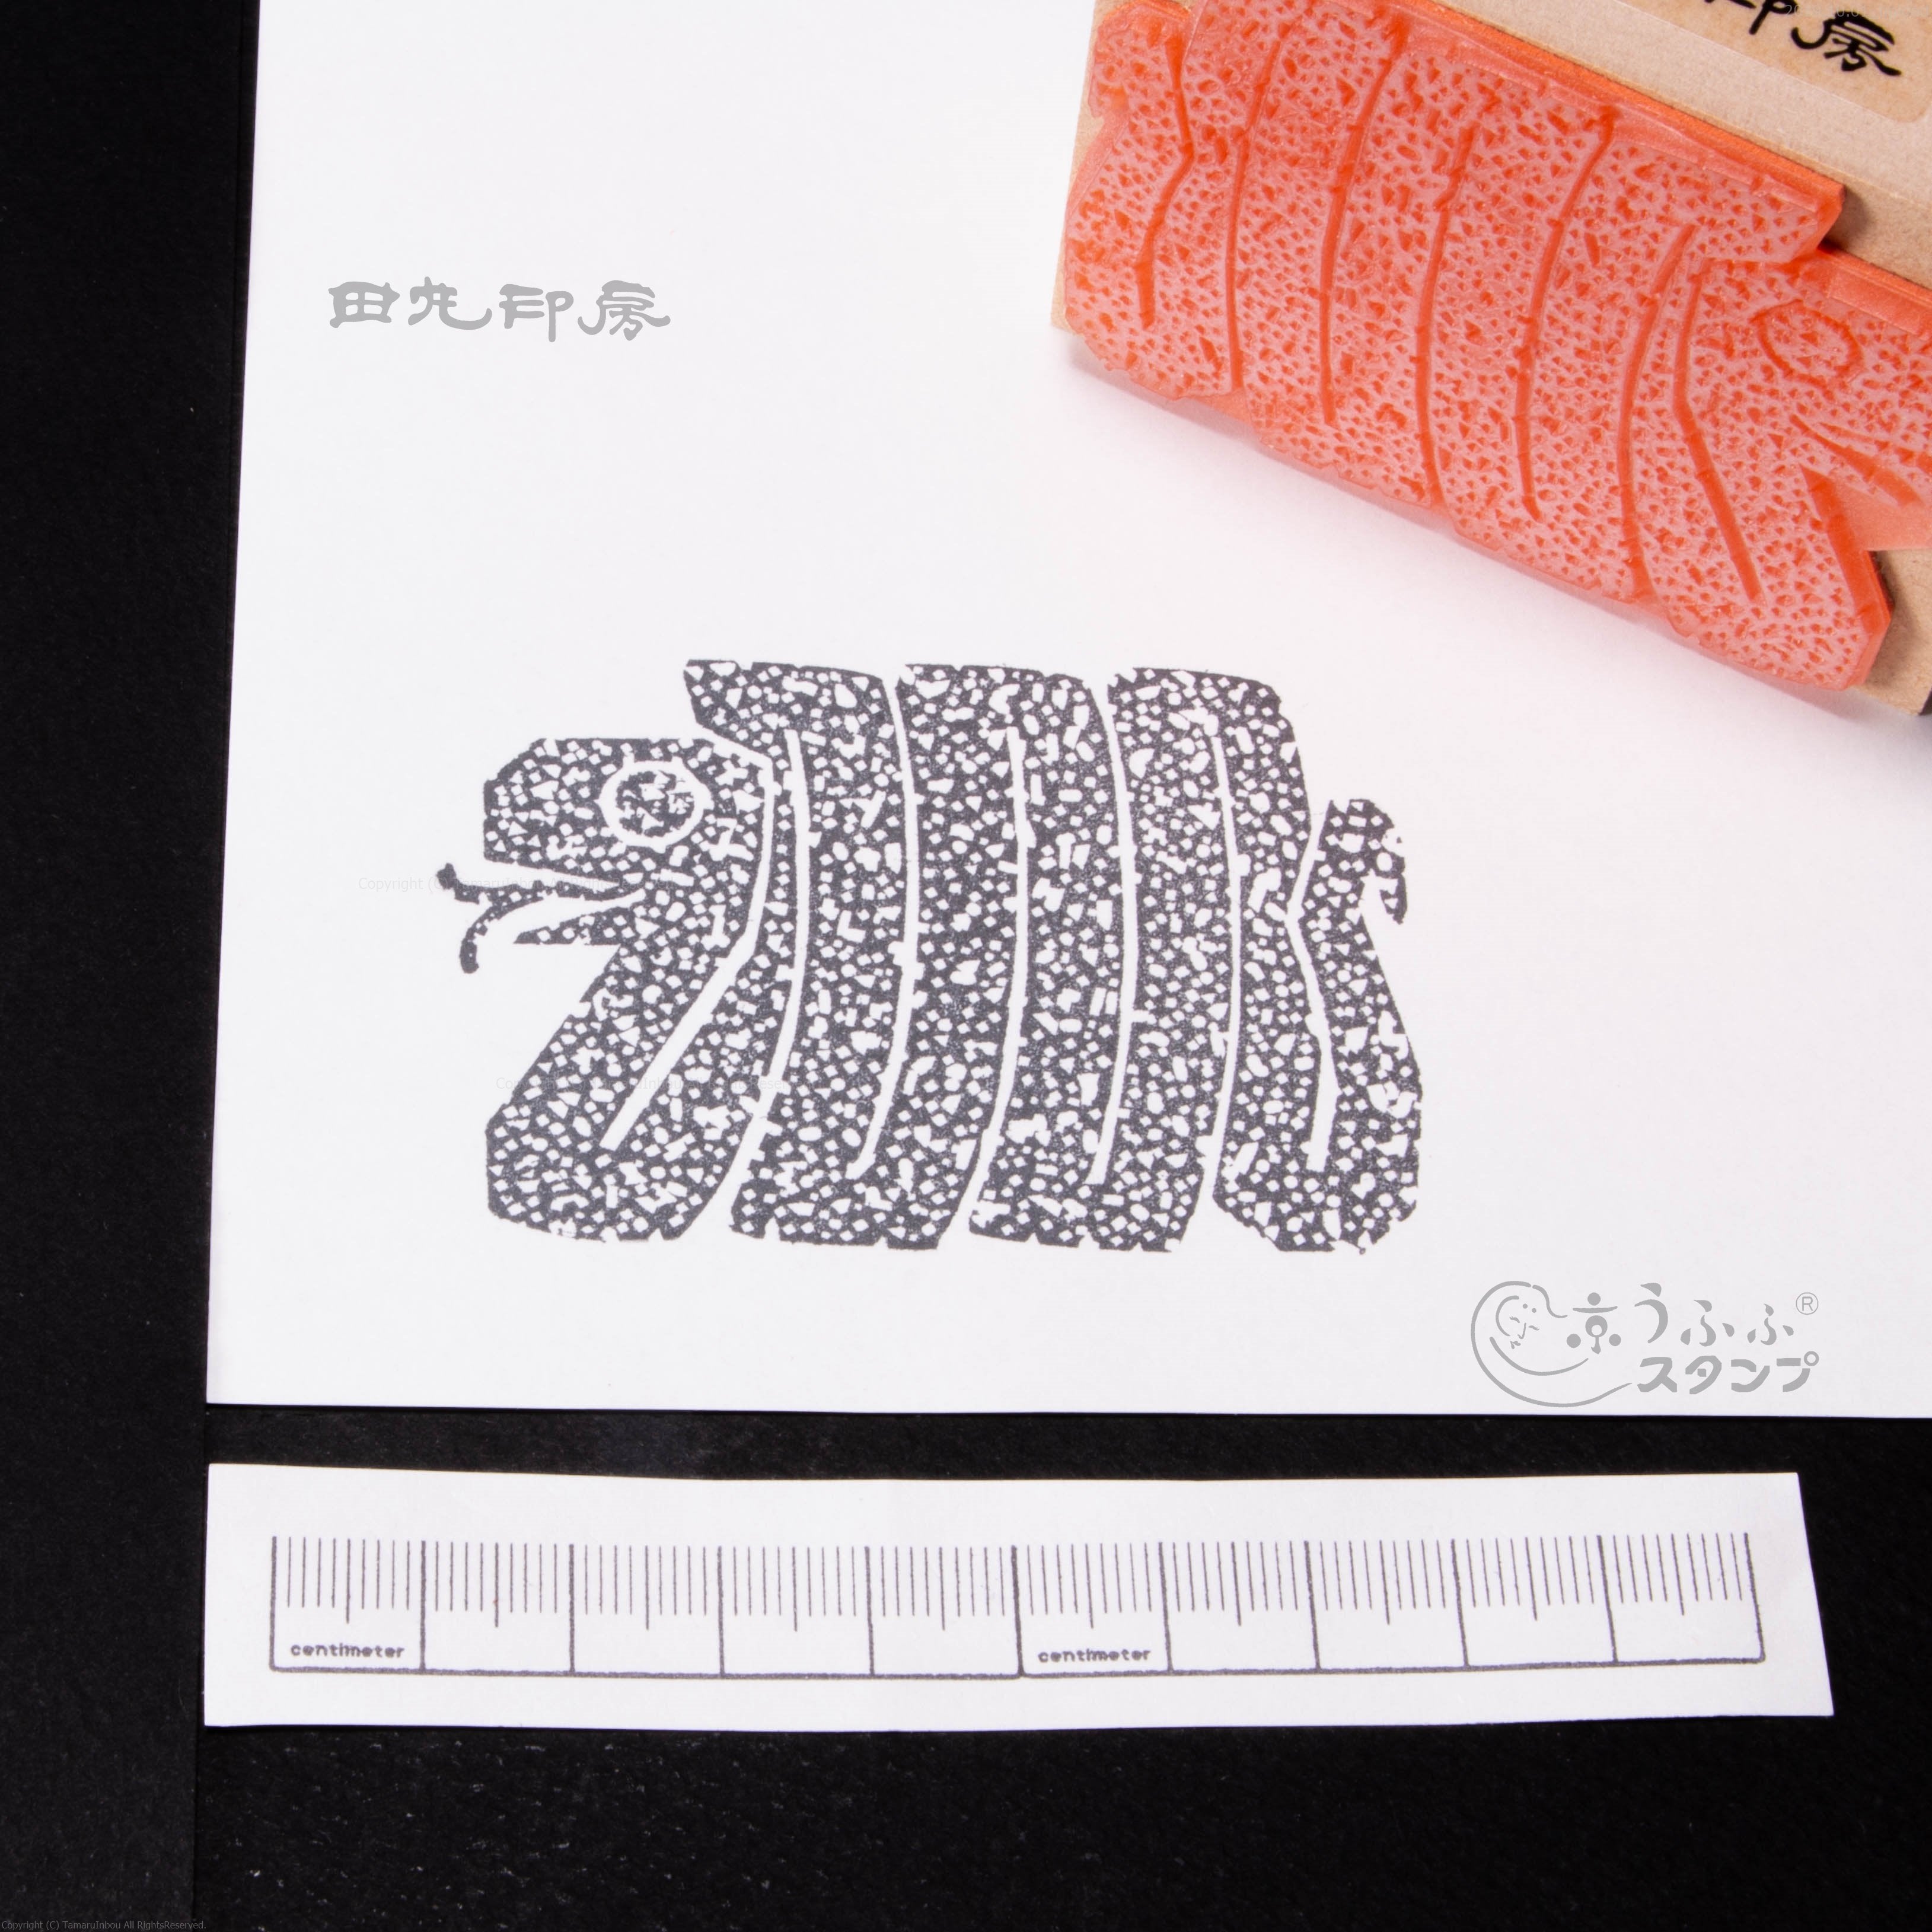 印房
田丸印房
Copyright (C) TamaruInbou
京うふふ®
スタンプ
centimeter
centimeter
Copyright (C) TamaruInbou All RightsReserved.